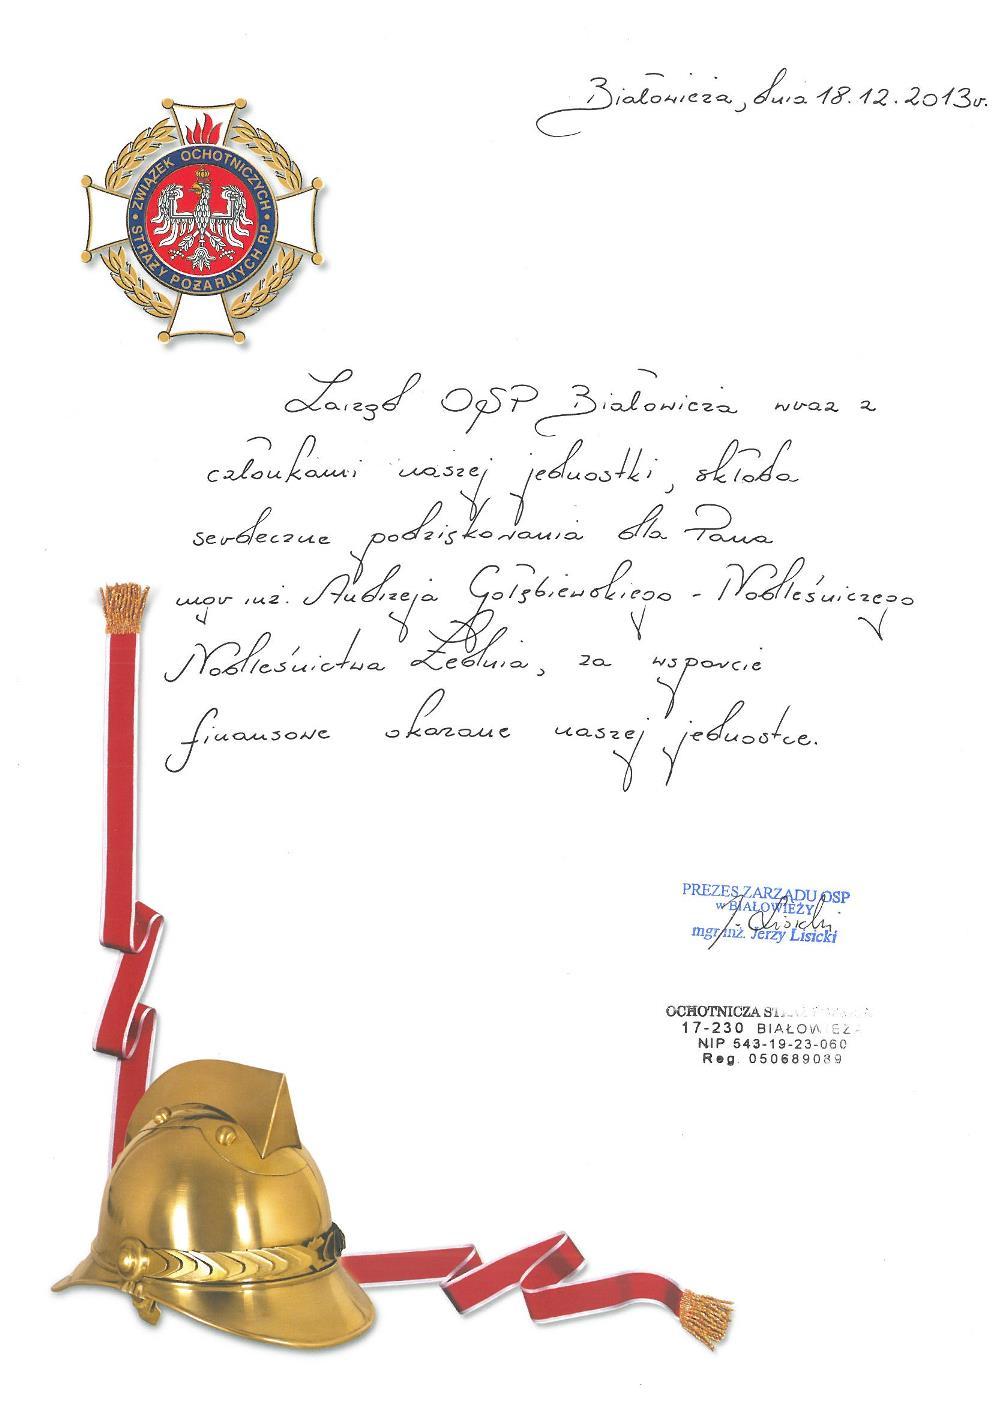 Białowieża, dnia 18.12.2013r.
ZWIĄZEK OCHOTNICZYCH
STRAŻY POŻARNYCH RP
Zarząd OSP Białowieża wraz z
członkami naszej jednostki, składa
serdeczne podziękowania dla Pana
mgr inż. Andrzeja Gołębiewskiego - Nadleśniczego
Nadleśnictwa Żednia, za wsparcie
finansowe okazane naszej jednostce.
PREZES ZARZĄDU OSP
w BIAŁOWIEŻY
J. Lisicki
mgr inż. Jerzy Lisicki
OCHOTNICZA
17-230 BIAŁOWIEŻA
NIP 543-19-23-060
Reg. 050689089